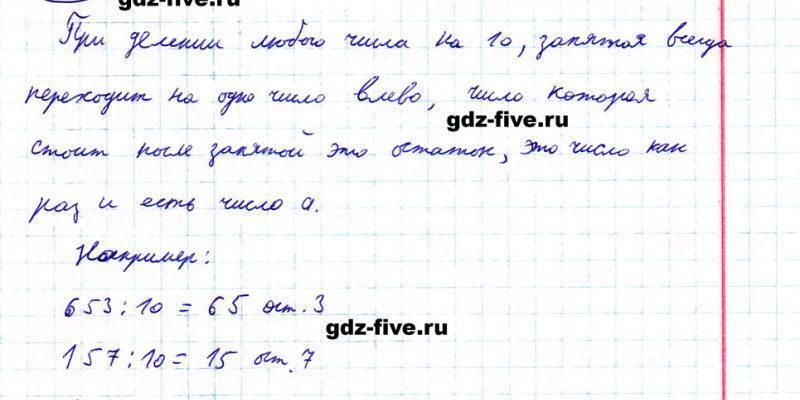 gdz-five.ru
При делении любого числа на 10, запятая всегда
переходит на одно число влево, число которая
gdz-five.ru
стоит после запятой это остаток, это число как
раз и есть число а.
Например:
653:10 = 65 ост. 3
gdz-five.ru
157:10 = 15 ост. 7